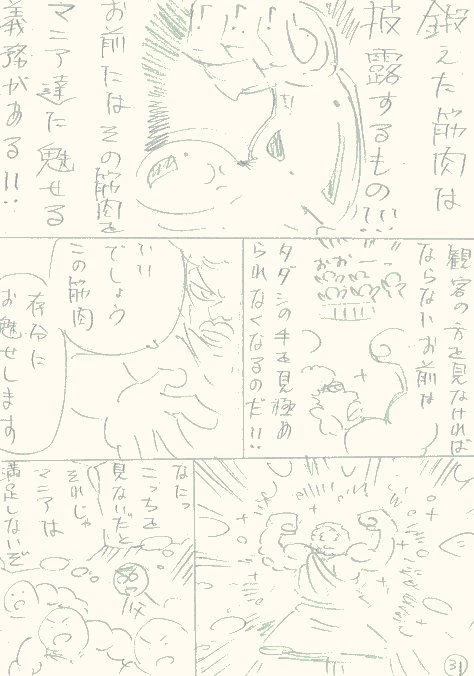 鍛えた筋肉は
披露するもの!!!
お前にはその筋肉を
マニア達に魅せる
義務がある!!
観客の方を見なければ
ならないお前は
タダシの手を見極め
られなくなるのだ!!
おおー
いい
でしょう
この筋肉
存分に
お魅せします
なにっ
こっちを
見ないだと
それじゃ
マニアは
満足しないぞ
31